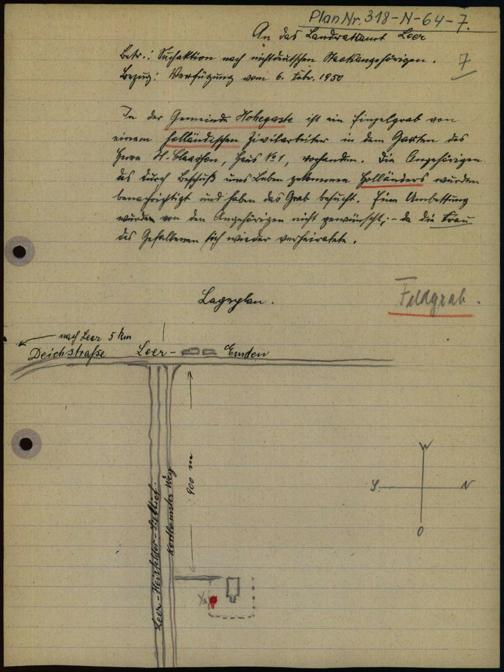 Plan Nr. 318-N-64-7.
An das Landratsamt Leer
7
Betr.: Suchaktion nach nichtdeutschen Staatsangehörigen.
Bezug: Verfügung vom 6. Febr. 1950
In der Gemeinde Hohegaste ist ein Einzelgrab von
einem holländischen Zivilarbeiter in dem Garten des
Herrn H. Claassen, Haus Nr 1, vorhanden. Die Angehörigen
des durch Beschuß ums Leben gekommene Holländers wurden
benachrichtigt und haben das Grab besucht. Eine Umbettung
würden von den Angehörigen nicht gewünscht, - da die Frau
des Gefallenen sich wieder verheiratete.
Lageplan.
Feldgrab.
nach Leer 5 km
Deichstraße Leer - Emden
900 m
Leer-
Weg
W
S N
O